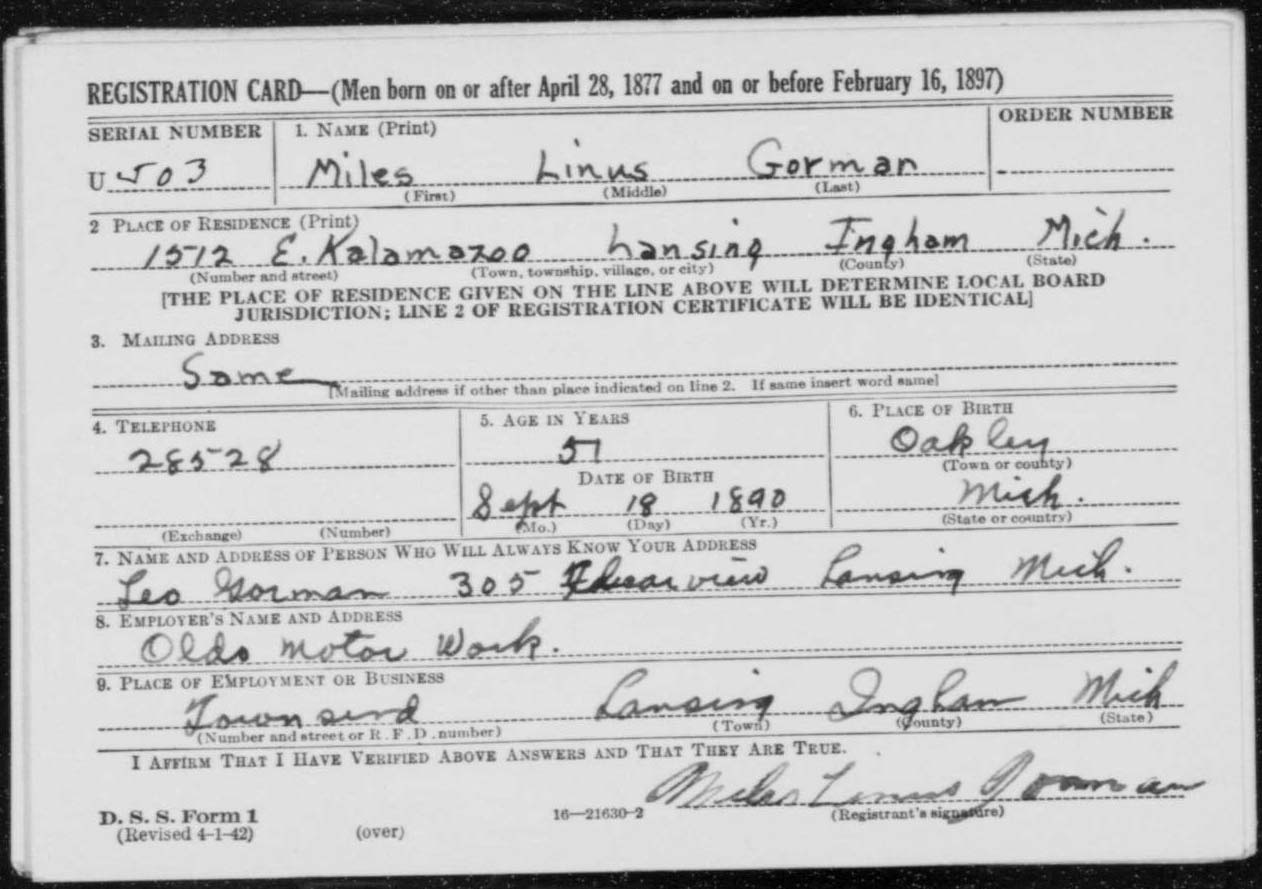 REGISTRATION CARD—(Men born on or after April 28, 1877 and on or before February 16, 1897)
SERIAL NUMBER 1. NAME (Print) ORDER NUMBER
U 503 Miles Linus Gorman
(First) (Middle) (Last)
2 PLACE OF RESIDENCE (Print)
1512 E. Kalamazoo Lansing Ingham Mich.
(Number and street) (Town, township, village, or city) (County) (State)
[THE PLACE OF RESIDENCE GIVEN ON THE LINE ABOVE WILL DETERMINE LOCAL BOARD
JURISDICTION; LINE 2 OF REGISTRATION CERTIFICATE WILL BE IDENTICAL]
3. MAILING ADDRESS
Same
[Mailing address if other than place indicated on line 2. If same insert word same]
4. TELEPHONE 5. AGE IN YEARS 6. PLACE OF BIRTH
28528 51 Oakley
(Town or county)
DATE OF BIRTH
Sept 18 1890 Mich.
(Exchange) (Number) (Mo.) (Day) (Yr.) (State or country)
7. NAME AND ADDRESS OF PERSON WHO WILL ALWAYS KNOW YOUR ADDRESS
Leo Gorman 305 Lansing Mich.
8. EMPLOYER'S NAME AND ADDRESS
Olds Motor Work.
9. PLACE OF EMPLOYMENT OR BUSINESS
Townsend Lansing Ingham Mich
(Number and street or R. F. D. number) (Town) (County) (State)
I AFFIRM THAT I HAVE VERIFIED ABOVE ANSWERS AND THAT THEY ARE TRUE.
Miles Linus Gorman
D. S. S. Form 1 16—21630-2 (Registrant's signature)
(Revised 4-1-42) (over)